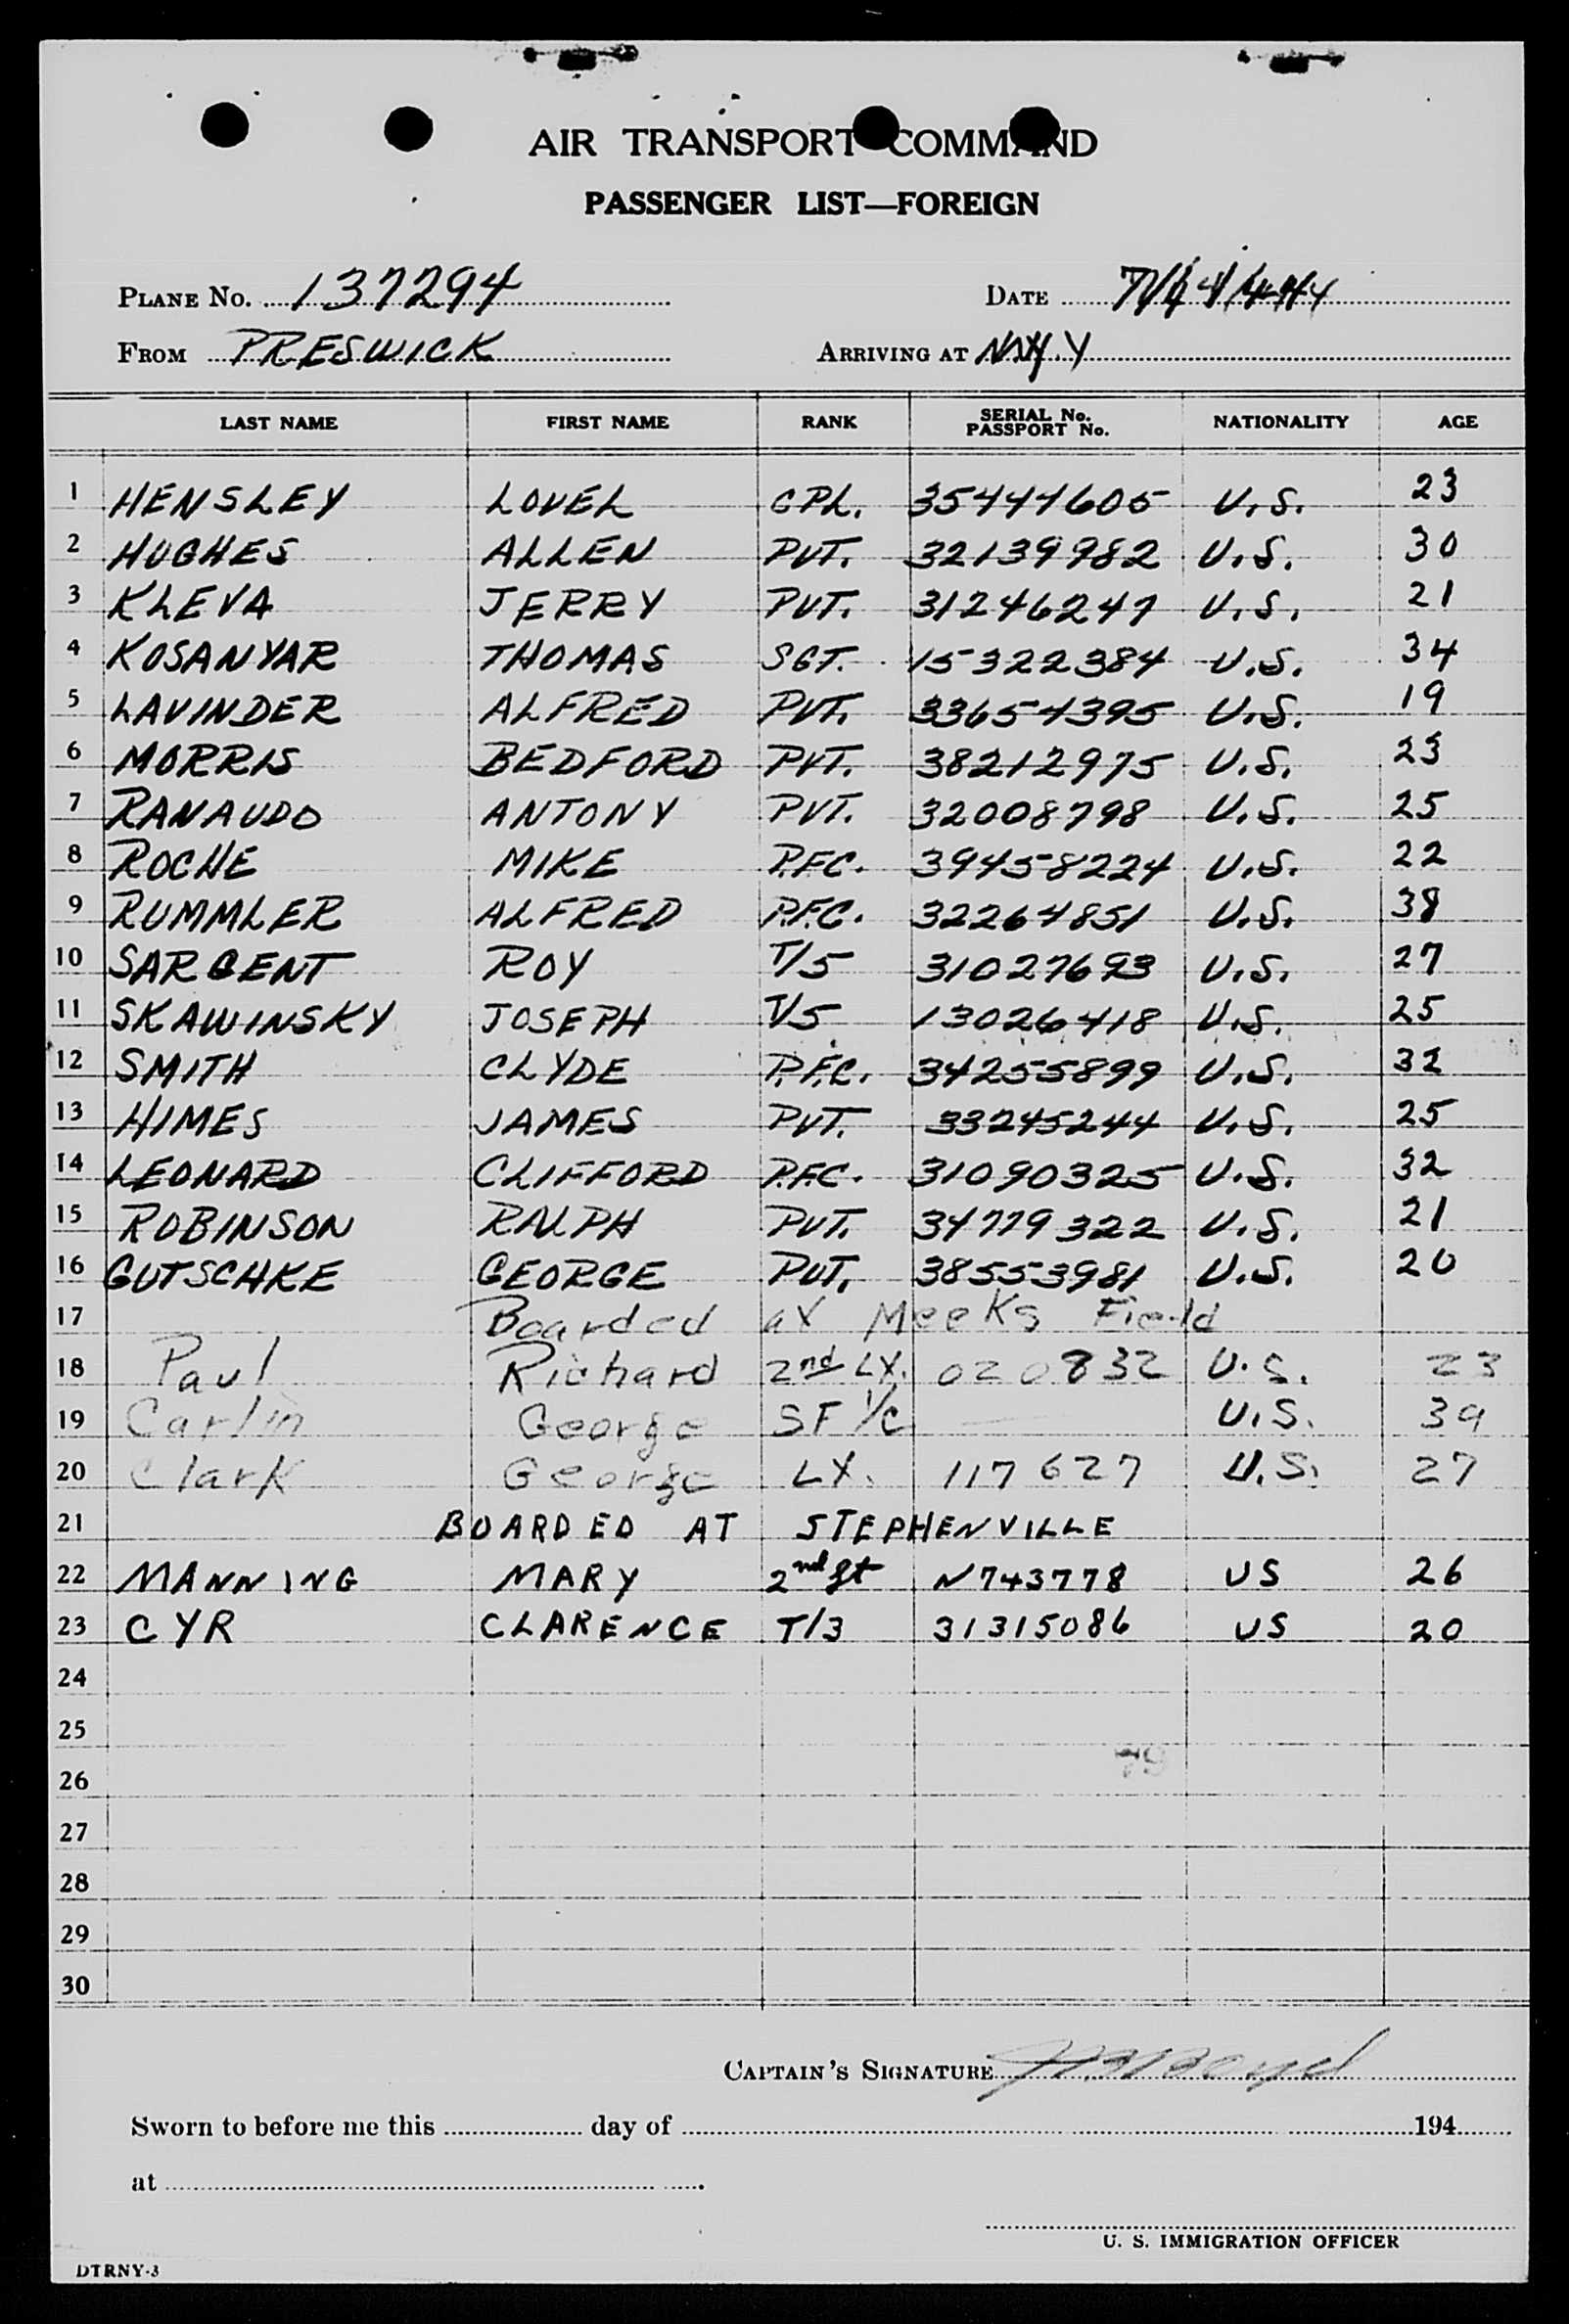 AIR TRANSPORT COMMAND
PASSENGER LIST—FOREIGN
PLANE No. 137294 DATE
FROM PRESWICK ARRIVING AT N.Y.
LAST NAME FIRST NAME RANK SERIAL No. PASSPORT No. NATIONALITY AGE
1 HENSLEY LOVEL CPL. 35444605 U.S. 23
2 HUGHES ALLEN PVT. 32139982 U.S. 30
3 KLEVA JERRY PVT. 31246247 U.S. 21
4 KOSANYAR THOMAS SGT. 15322384 U.S. 34
5 LAVINDER ALFRED PVT. 33654395 U.S. 19
6 MORRIS BEDFORD PVT. 38212975 U.S. 23
7 RANAUDO ANTONY PVT. 32008798 U.S. 25
8 ROCHE MIKE P.F.C. 39458224 U.S. 22
9 RUMMLER ALFRED P.F.C. 32264851 U.S. 38
10 SARGENT ROY T/5 31027693 U.S. 27
11 SKAWINSKY JOSEPH T/5 13026418 U.S. 25
12 SMITH CLYDE P.F.C. 34255899 U.S. 32
13 HIMES JAMES PVT. 33245244 U.S. 25
14 LEONARD CLIFFORD P.F.C. 31090325 U.S. 32
15 ROBINSON RALPH PVT. 34779322 U.S. 21
16 GUTSCHKE GEORGE PVT. 38553981 U.S. 20
17 Boarded at Meeks Field
18 Paul Richard 2nd Lt. 020832 U.S. 23
19 Carlin George SF 1/c U.S. 39
20 Clark George Lt. 117627 U.S. 27
21 BOARDED AT STEPHENVILLE
22 MANNING MARY 2nd Lt N743778 US 26
23 CYR CLARENCE T/3 31315086 US 20
24
25
26 79
27
28
29
30
CAPTAIN'S SIGNATURE
Sworn to before me this day of 194
at .
U. S. IMMIGRATION OFFICER
DTRNY-3